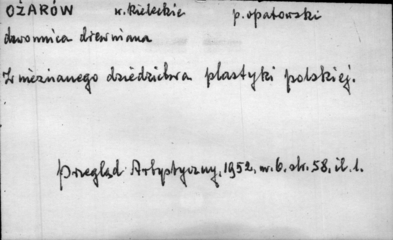 OŻARÓW w. kieleckie p. opatowski
dzwonnica drewniana
Z nieznanego dziedzictwa plastyki polskiej.
Przegląd Artystyczny, 1952, nr. 6. str. 58, il. 1.